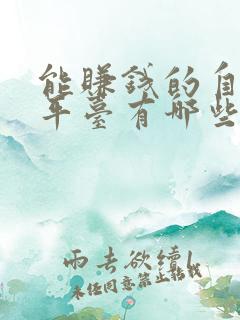 能賺錢的自
平臺有哪些
雨去欲續
未经同意禁止转载